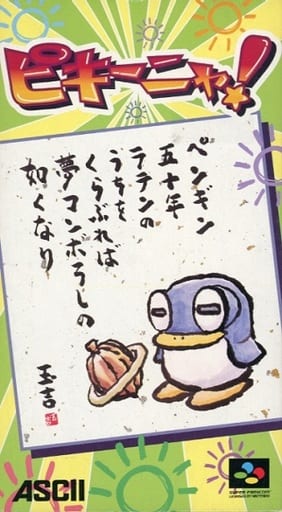 ピキーニャ!
ペンギン
五十年
ラテンの
うちを
くらぶれば
夢マンボうしの
如くなり
玉吉
ASCII
SUPER FAMICOM